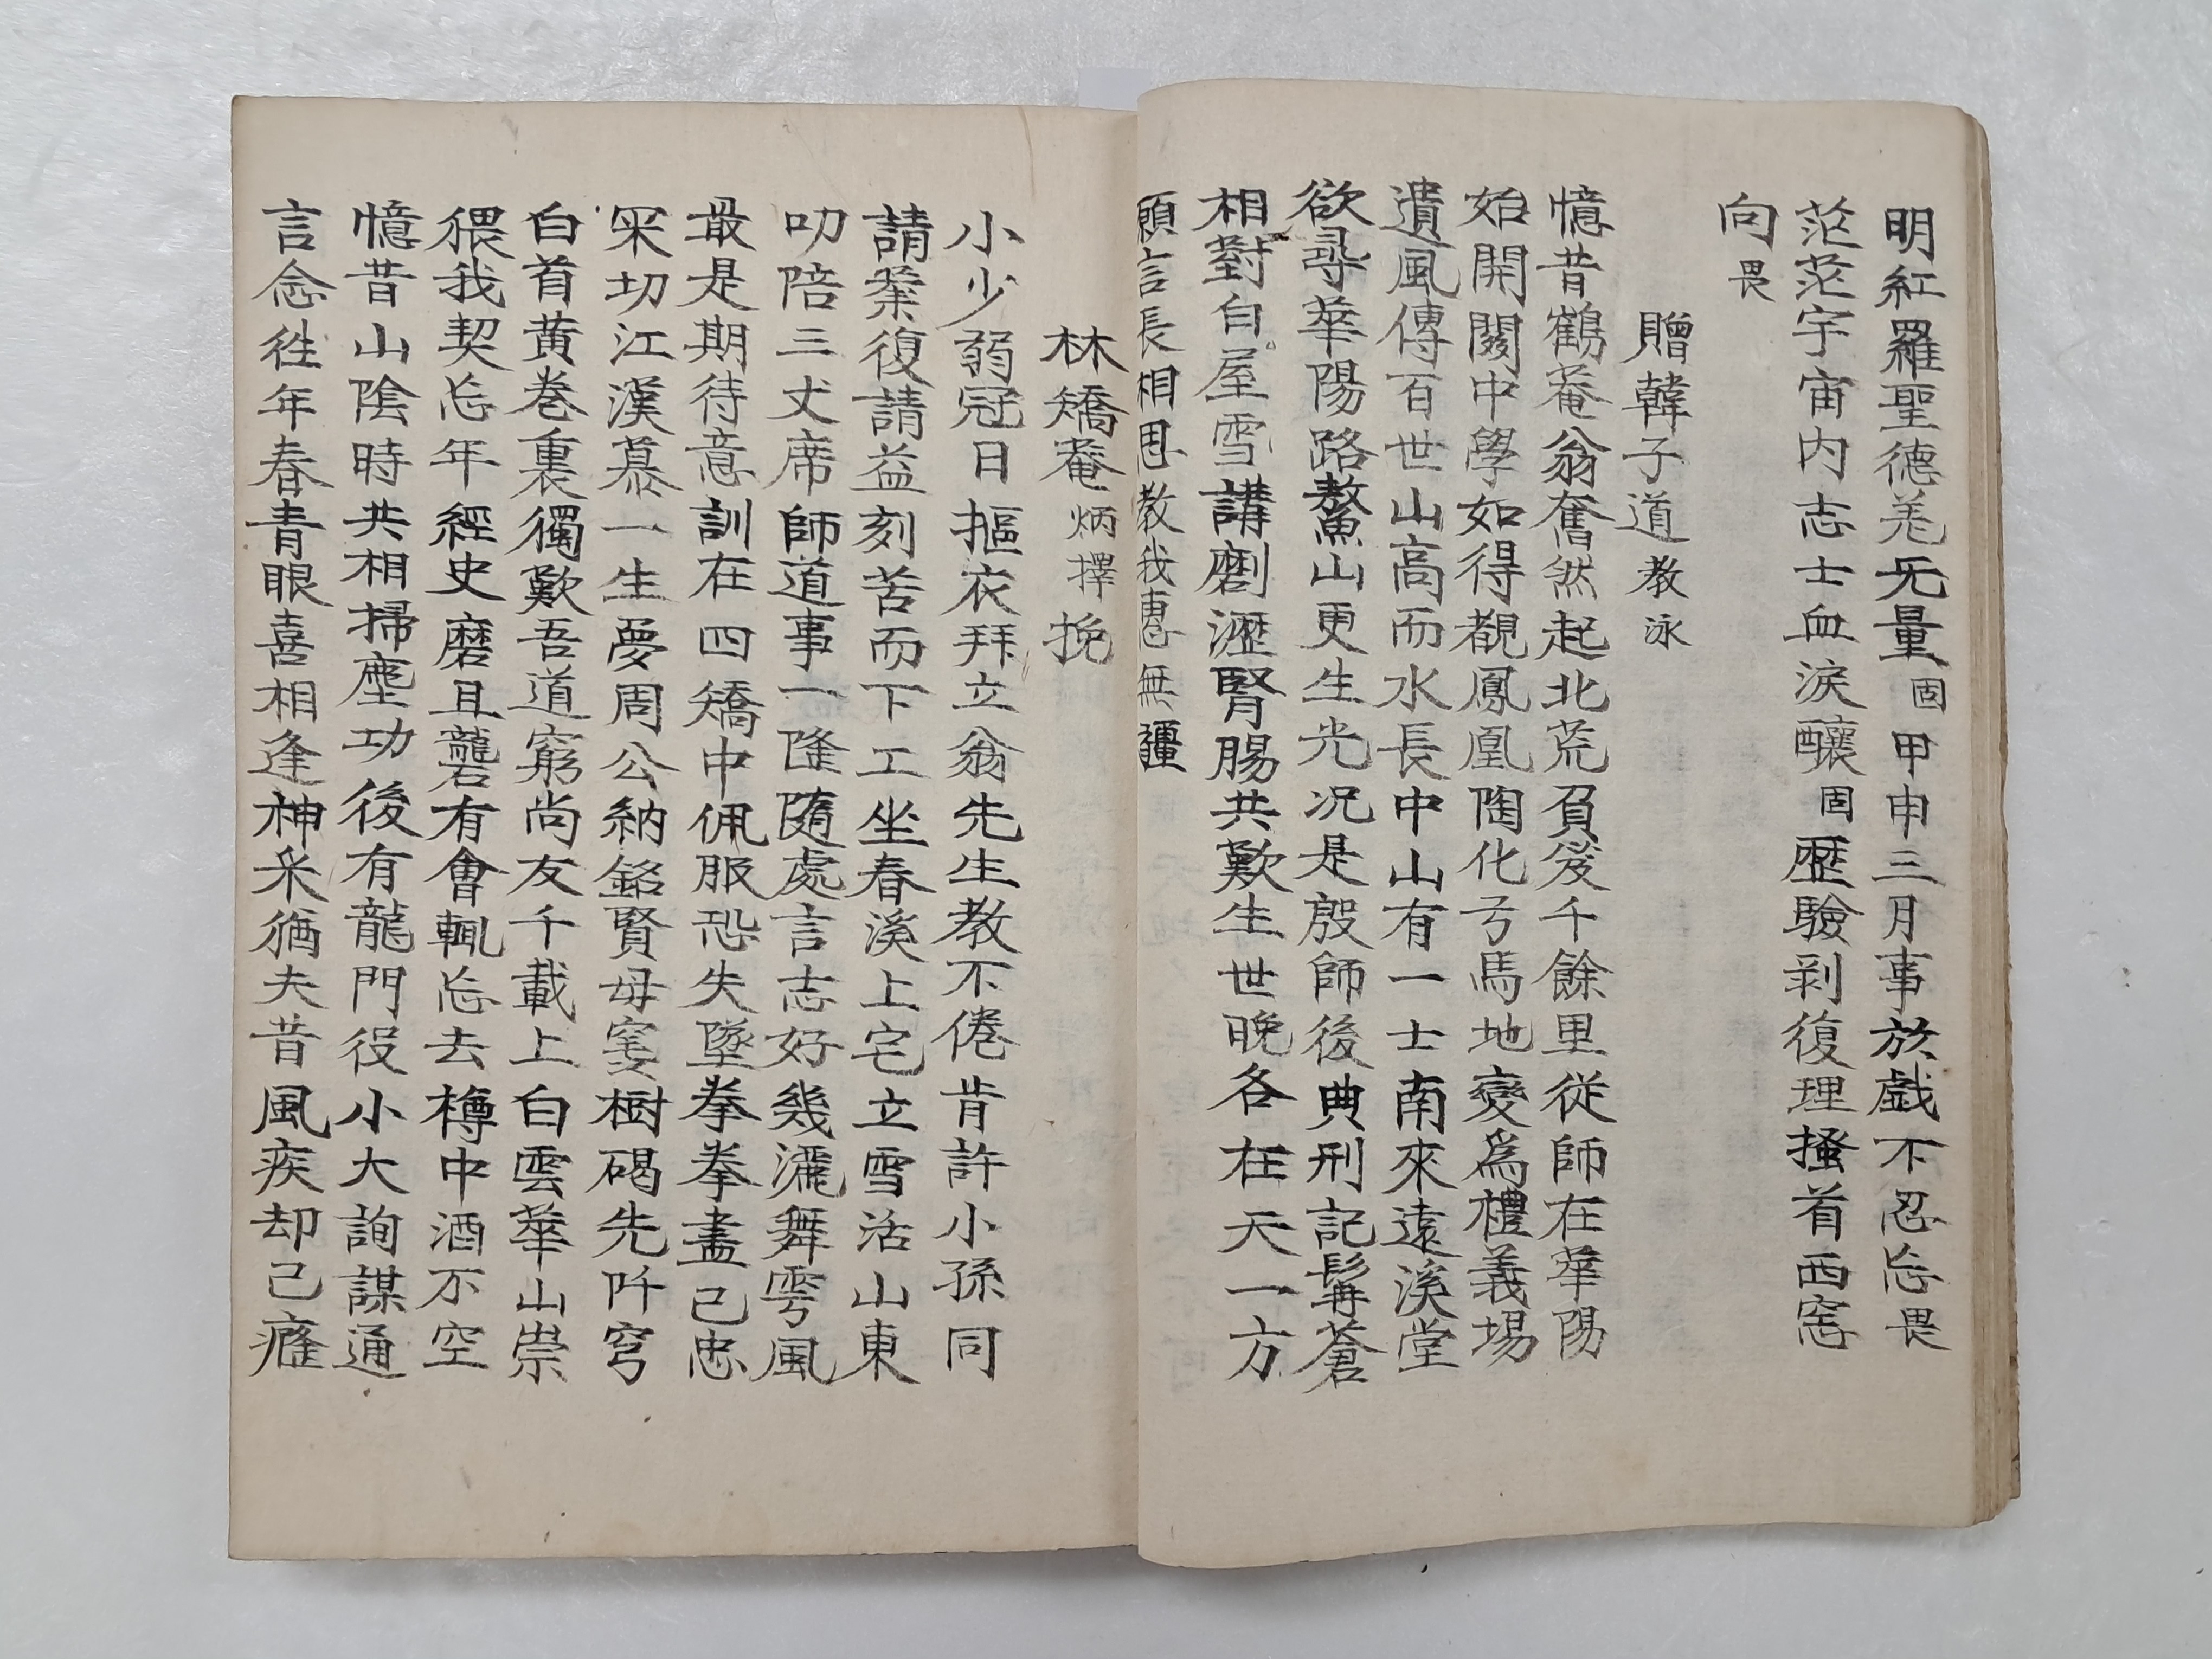 明紅羅聖德羌无量固甲申三月事於戲不忍忘畏
茫茫宇宙内志士血淚釀固歷驗剥復理搔首西窓
向畏
贈韓子道教泳
憶昔鶴菴翁奮然起北荒負笈千餘里從師在華陽
始開關中學如得覩鳳凰陶化弓馬地變爲禮義場
遺風傳百世山高而水長中山有一士南來遠溪堂
欲尋華陽路鰲山更生光况是殷師後典刑記髯蒼
相對白屋雪講劘瀝腎腸共歎生世晚各在天一方
願言長相思教我惠無疆
林矯菴炳擇挽
小少弱冠日摳衣拜立翁先生教不倦肯許小孫同
請業復請益刻苦而下工坐春溪上宅立雪活山東
叨陪三丈席師道事一隆隨處言志好幾灑舞雩風
最是期待意訓在四矯中佩服恐失墜拳拳盡己忠
罙切江漢慕一生夢周公納銘賢母窆樹碣先阡穹
白首黄巻裏獨歎吾道窮尙友千載上白雲華山崇
猥我契忘年經史磨且礱有會輒忘去樽中酒不空
憶昔山陰時共相掃塵功後有龍門役小大詢謀通
言念徃年春青眼喜相逢神采猶夫昔風疾却已癃